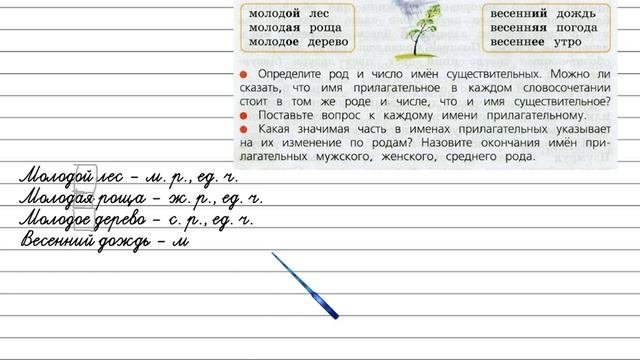 молодой лес
молодая роща
молодое дерево
весенний дождь
весенняя погода
весеннее утро
● Определите род и число имён существительных. Можно ли
сказать, что имя прилагательное в каждом словосочетании
стоит в том же роде и числе, что и имя существительное?
● Поставьте вопрос к каждому имени прилагательному.
● Какая значимая часть в именах прилагательных указывает
на их изменение по родам? Назовите окончания имён при-
лагательных мужского, женского, среднего рода.
Молодой лес – м. р., ед. ч.
Молодая роща – ж. р., ед. ч.
Молодое дерево – с. р., ед. ч.
Весенний дождь – м